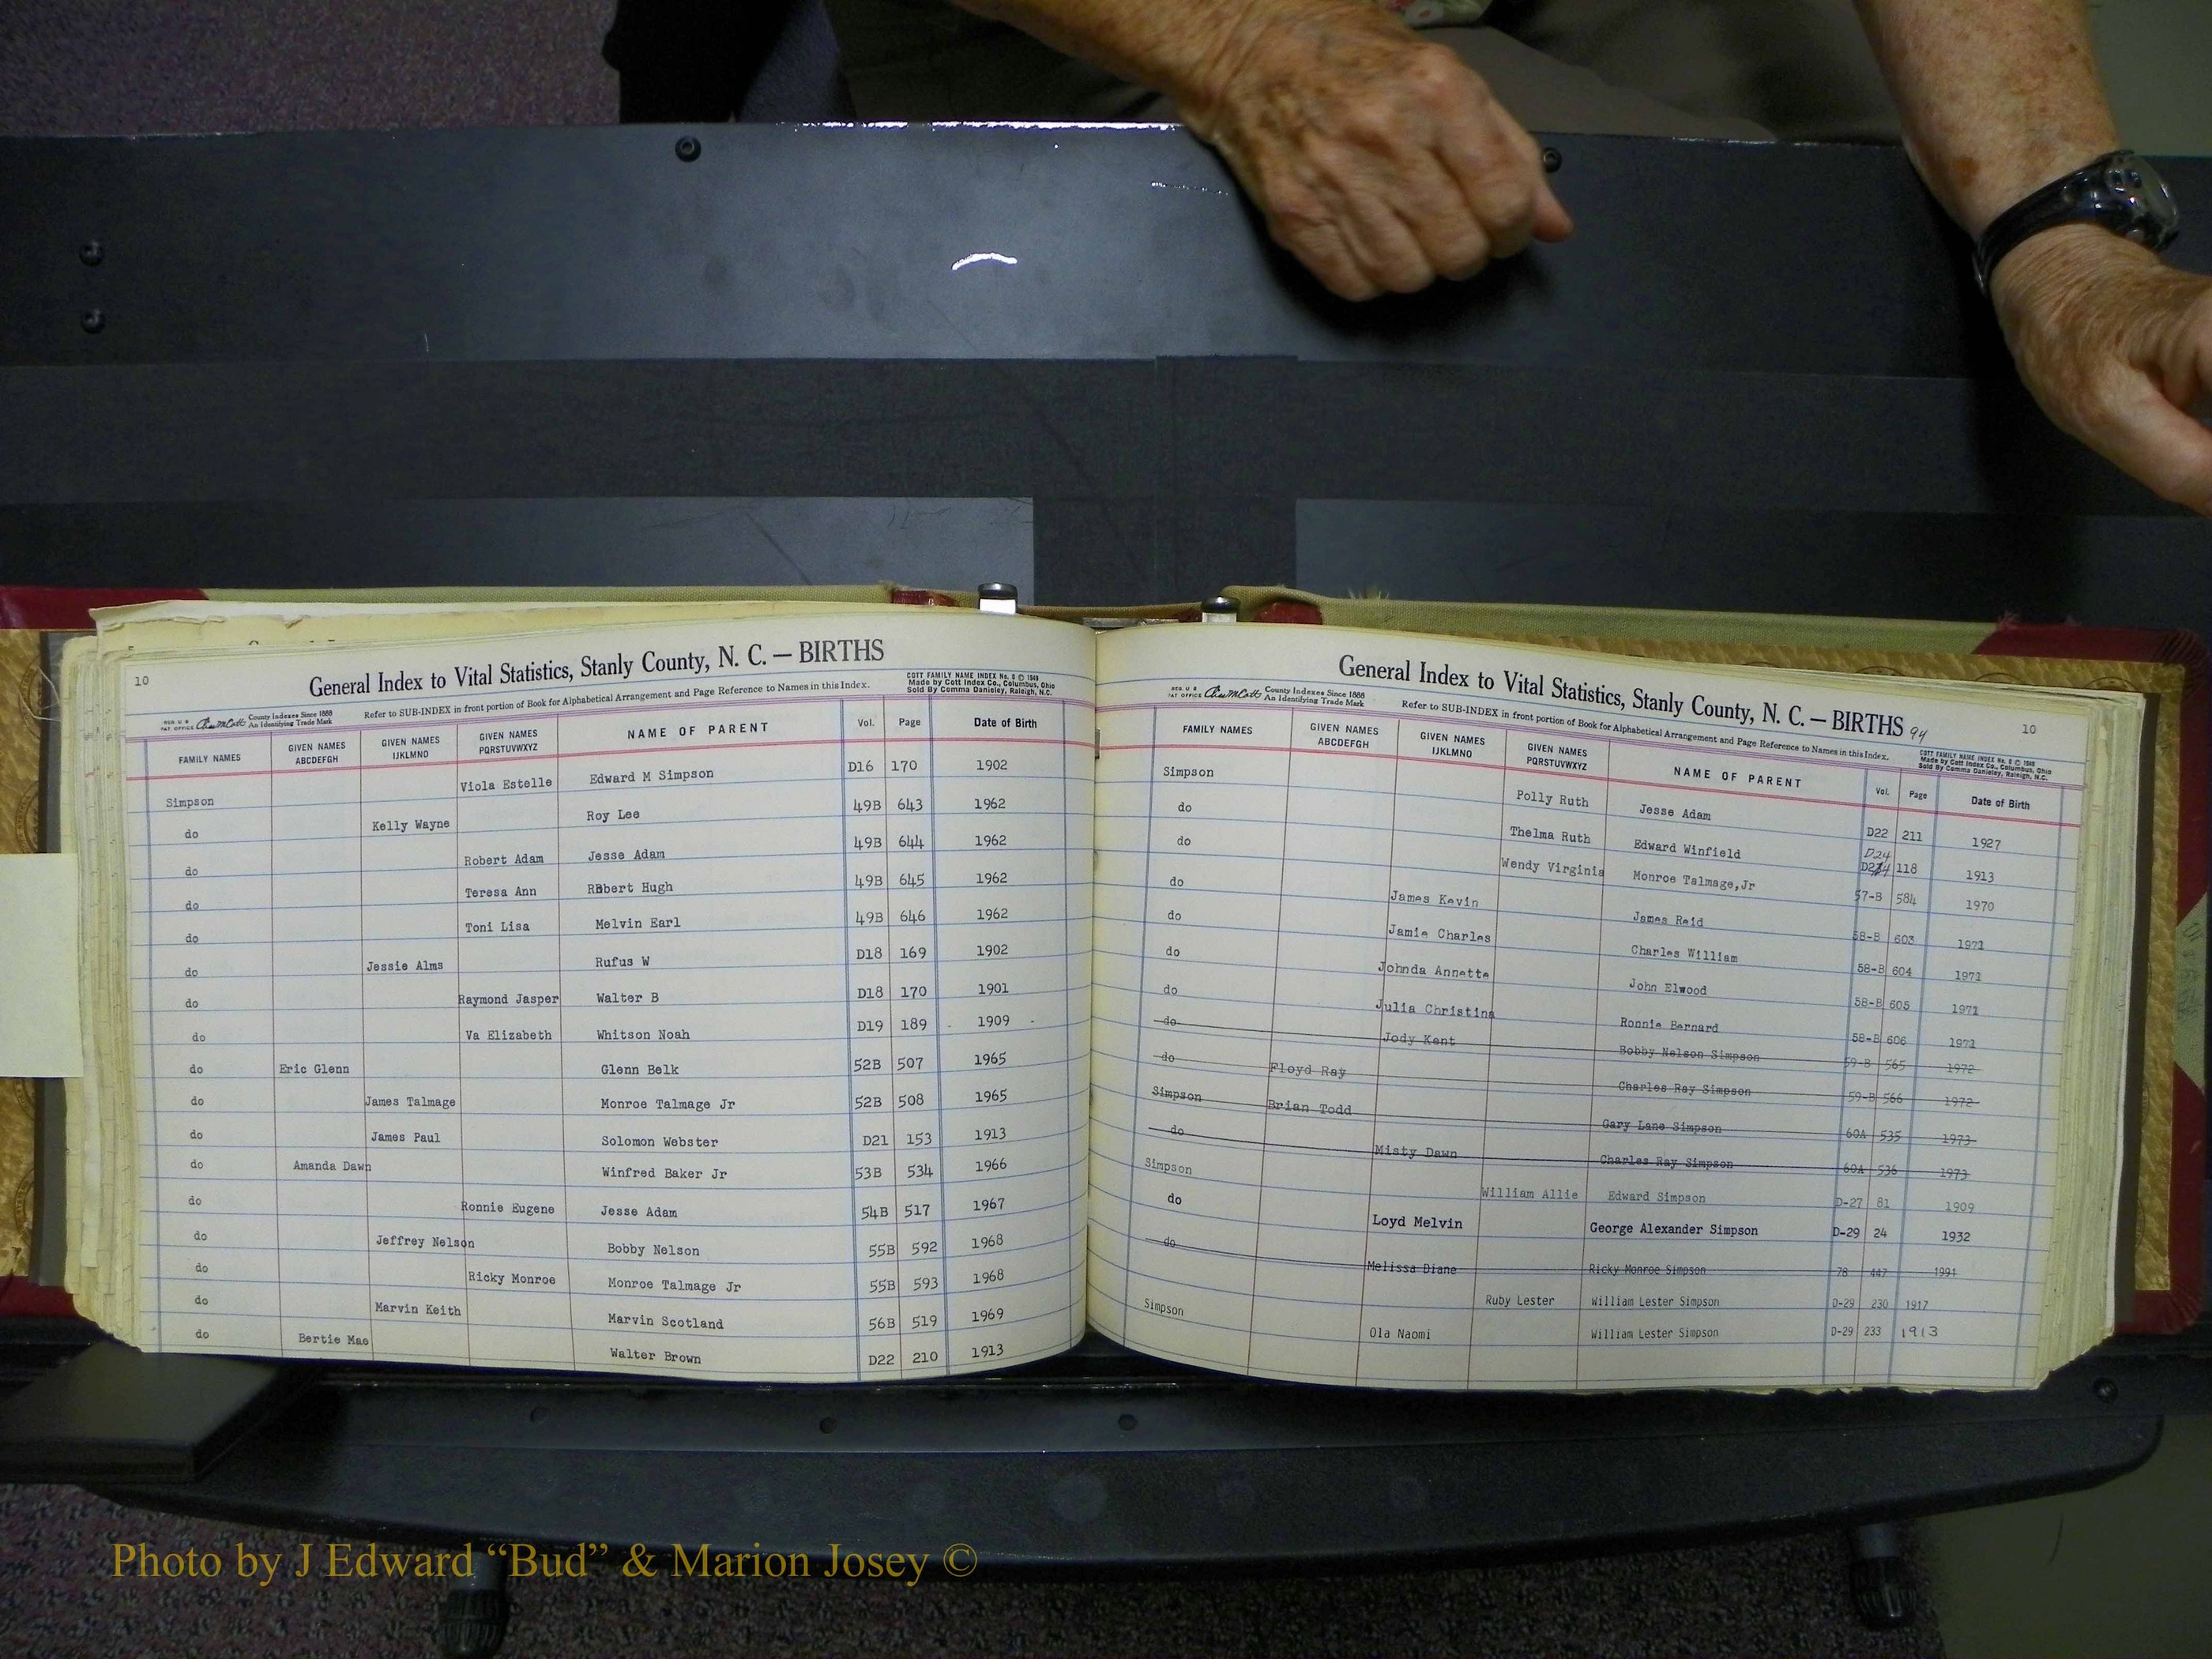 10
General Index to Vital Statistics, Stanly County, N. C. — BIRTHS
COTT FAMILY NAME INDEX No. 8 © 1949
Made by Cott Index Co., Columbus, Ohio
Sold By Comma Danieley, Raleigh, N.C.
REG. U S PAT OFFICE County Indexes Since 1888
An Identifying Trade Mark
Refer to SUB-INDEX in front portion of Book for Alphabetical Arrangement and Page Reference to Names in this Index.
FAMILY NAMES GIVEN NAMES ABCDEFGH GIVEN NAMES IJKLMNO GIVEN NAMES PQRSTUVWXYZ NAME OF PARENT Vol. Page Date of Birth
Simpson Viola Estelle Edward M Simpson D16 170 1902
do Kelly Wayne Roy Lee 49B 643 1962
do Robert Adam Jesse Adam 49B 644 1962
do Teresa Ann Robert Hugh 49B 645 1962
do Toni Lisa Melvin Earl 49B 646 1962
do Jessie Alms Rufus W D18 169 1902
do Raymond Jasper Walter B D18 170 1901
do Va Elizabeth Whitson Noah D19 189 1909
do Eric Glenn Glenn Belk 52B 507 1965
do James Talmage Monroe Talmage Jr 52B 508 1965
do James Paul Solomon Webster D21 153 1913
do Amanda Dawn Winfred Baker Jr 53B 534 1966
do Ronnie Eugene Jesse Adam 54B 517 1967
do Jeffrey Nelson Bobby Nelson 55B 592 1968
do Ricky Monroe Monroe Talmage Jr 55B 593 1968
do Marvin Keith Marvin Scotland 56B 519 1969
do Bertie Mae Walter Brown D22 210 1913
General Index to Vital Statistics, Stanly County, N. C. — BIRTHS 94
10
REG. U S PAT OFFICE County Indexes Since 1888
An Identifying Trade Mark
Refer to SUB-INDEX in front portion of Book for Alphabetical Arrangement and Page Reference to Names in this Index.
COTT FAMILY NAME INDEX No. 8 © 1949
Made by Cott Index Co., Columbus, Ohio
Sold By Comma Danieley, Raleigh, N.C.
FAMILY NAMES GIVEN NAMES ABCDEFGH GIVEN NAMES IJKLMNO GIVEN NAMES PQRSTUVWXYZ NAME OF PARENT Vol. Page Date of Birth
Simpson Polly Ruth Jesse Adam D22 211 1927
do Thelma Ruth Edward Winfield D24 118 1913
do Wendy Virginia Monroe Talmage,Jr 57-B 584 1970
do James Kevin James Reid 58-B 603 1971
do Jamie Charles Charles William 58-B 604 1971
do Johnda Annette John Elwood 58-B 605 1971
do Julia Christina Ronnie Bernard 58-B 606 1971
do Jody Kent Bobby Nelson Simpson 59-B 565 1972
do Floyd Ray Charles Ray Simpson 59-B 566 1972
Simpson Brian Todd Gary Lane Simpson 60A 535 1973
do Misty Dawn Charles Ray Simpson 60A 536 1973
Simpson William Allie Edward Simpson D-27 81 1909
do Loyd Melvin George Alexander Simpson D-29 24 1932
do Melissa Diane Ricky Monroe Simpson 78 447 1991
Ruby Lester William Lester Simpson D-29 230 1917
Simpson Ola Naomi William Lester Simpson D-29 233 1913
Photo by J Edward “Bud” & Marion Josey ©